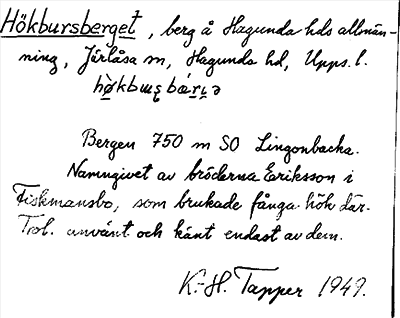 Hökbursberget, berg å Hagunda hds allmän-
ning, Järlåsa sn, Hagunda hd, Upps. l.
Bergen 750 m SO Lingonbacka.
Namngivet av bröderna Eriksson i
Fiskmansbo, som brukade fånga hök där.
Trol. använt och känt endast av dem.
K.-H. Tapper 1949.